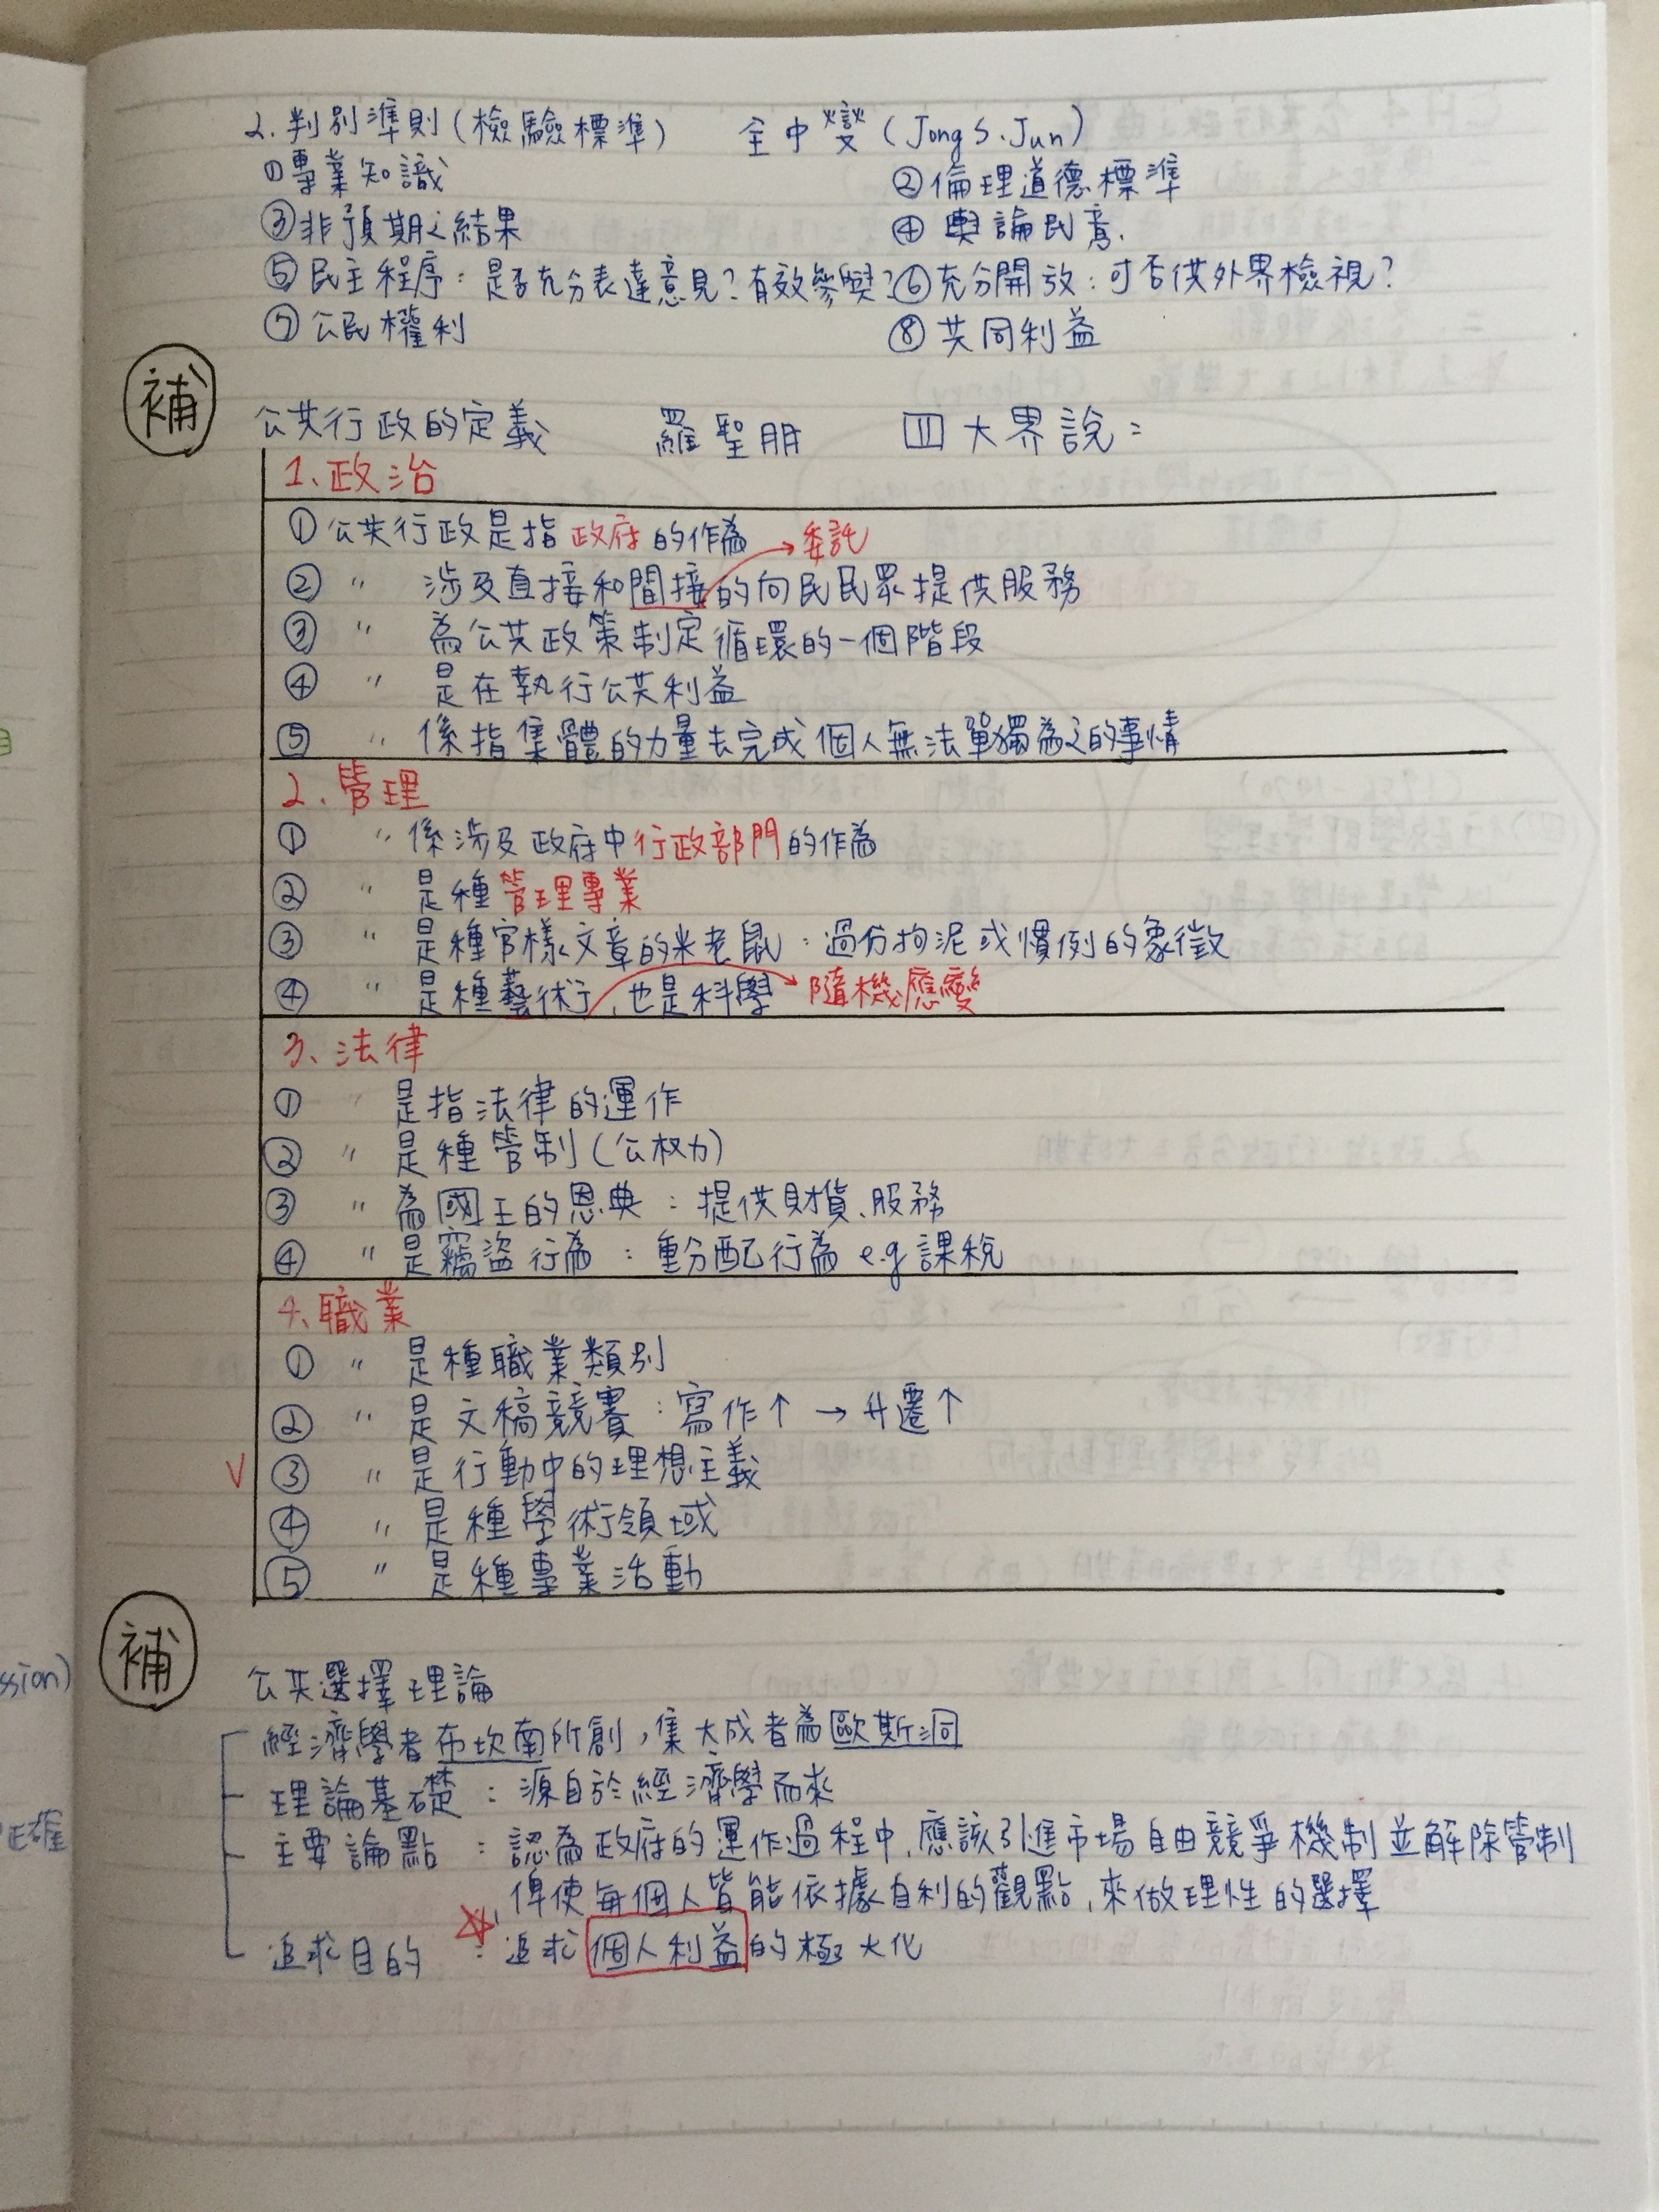 2. 判別準則(檢驗標準) 全中燮 (Jong S. Jun)
①專業知識 ②倫理道德標準
③非預期之結果 ④輿論民意.
⑤民主程序：是否充分表達意見？有效參與？⑥充分開放：可否供外界檢視？
⑦公民權利 ⑧共同利益
補
公共行政的定義 羅聖朋 四大界說：
1、政治
①公共行政是指政府的作為 →委託
② 〃 涉及直接和間接的向民民眾提供服務
③ 〃 為公共政策制定循環的一個階段
④ 〃 是在執行公共利益
⑤ 〃 係指集體的力量去完成個人無法單獨為之的事情
2、管理
① 〃 係涉及政府中行政部門的作為
② 〃 是種管理專業
③ 〃 是種官樣文章的米老鼠：過份拘泥或慣例的象徵
④ 〃 是種藝術，也是科學 →隨機應變
3、法律
① 〃 是指法律的運作
② 〃 是種管制(公权力)
③ 〃 為國王的恩典：提供財貨、服務
④ 〃 是竊盜行為：重分配行為 e.g 課稅
4、職業
① 〃 是種職業類別
② 〃 是文稿競賽：寫作↑ → 升遷↑
V ③ 〃 是行動中的理想主義
④ 〃 是種學術領域
⑤ 〃 是種專業活動
補
ssion)
公共選擇理論
經濟學者布坎南所創，集大成者為歐斯洞
理論基礎：源自於經濟學而來
正確
主要論點：認為政府的運作過程中，應該引進市場自由競爭機制並解除管制
俾使每個人皆能依據自利的觀點，來做理性的選擇
追求目的 ☆：追求個人利益的極大化